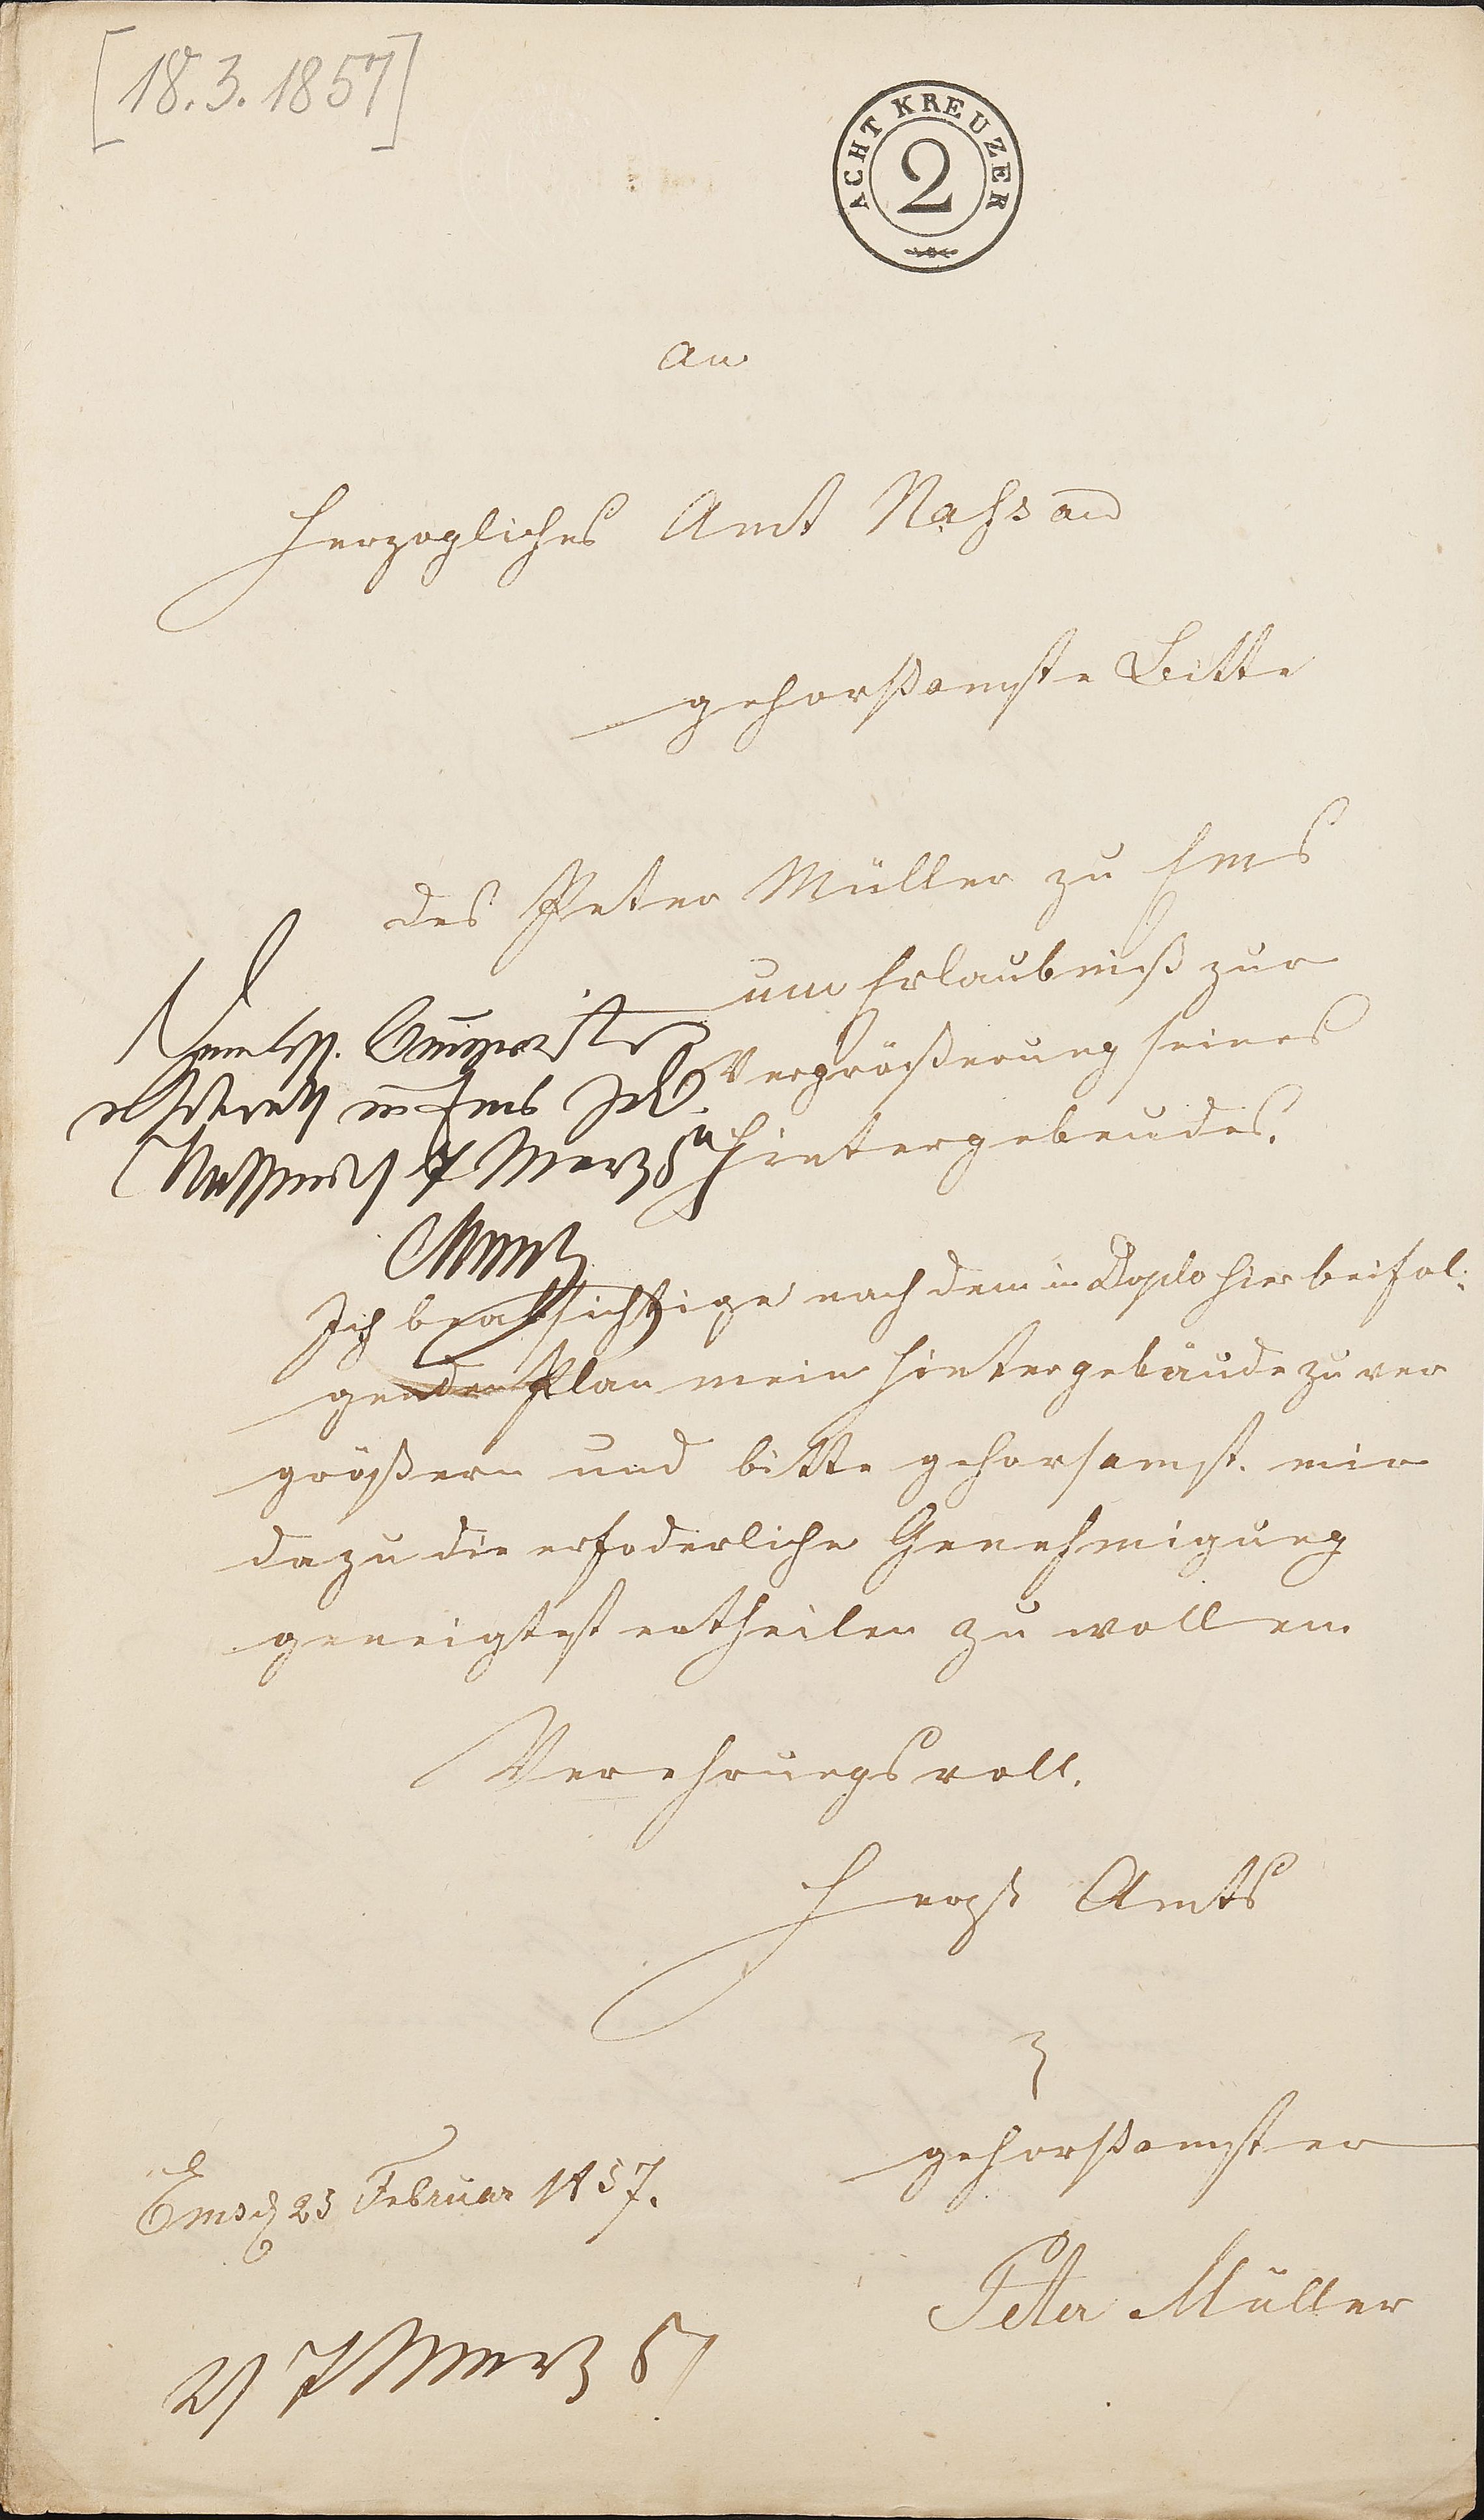 [18.3.1857]
ACHT KREUZER
2
An
Herzogliches Amt Nassau
gehorßamste Bitte
des Peter Müller zu Ems
um Erlaubniß zur
Vergrößerung seines
Hintergebeudes.
zu Ems
Nassau 7 Merz 57
Ich beabsichtige nach dem in Duplo hier beifol-
genden Plan mein Hintergebäude zu ver
größern und bitte gehorsamst. mir
dazu die erfoderliche Genehmigung
geneigtest ertheilen zu wollen.
Verehrungsvoll.
Herzgl Amts
gehorßamster
Ems d 23 Februar 1857.
Peter Müller
7 Merz 57